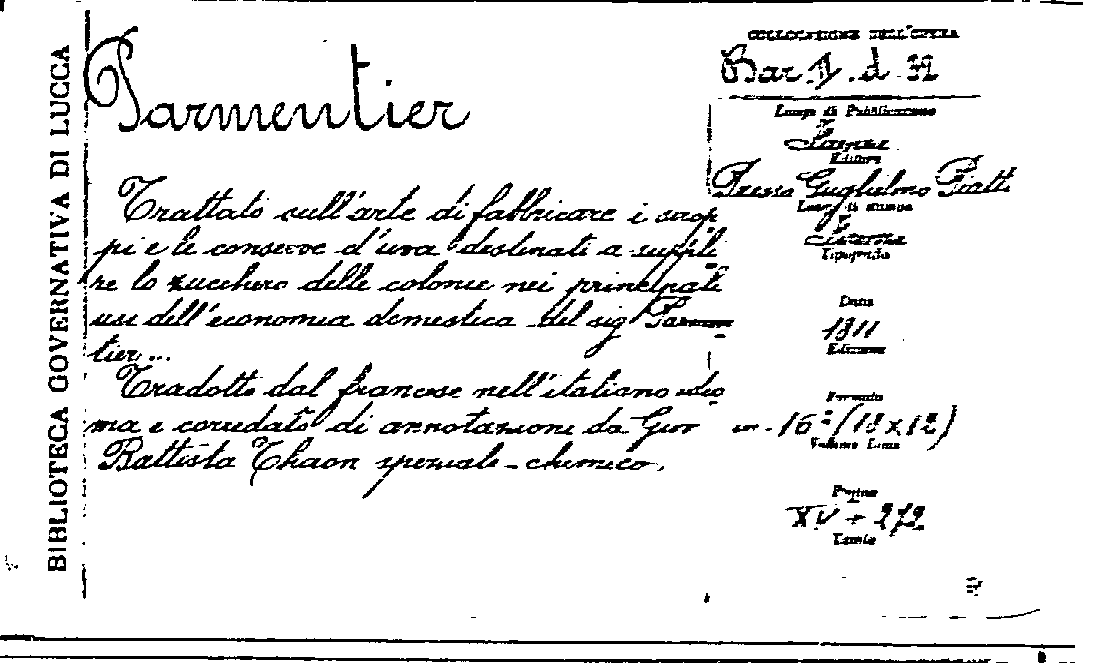 BIBLIOTECA GOVERNATIVA DI LUCCA
Parmentier
Trattato sull'arte di fabbricare i sirop
pi e le conserve d'uva destinati a suppli
re lo zucchero delle colonie nei principali
usi dell'economia domestica del sig Parmen
tier...
Tradotto dal francese nell'italiano idio
ma e corredato di annotazione da Giov
Battista Thaon speziale-chimico.
COLLOCAZIONE DELL'OPERA
Bar. d. 32
Luogo di Pubblicazione
Firenze
Editore
Presso Guglielmo Piatti
Luogo di stampa
Tipografia
Data
1811
Edizione
Formato
in-16º (18x12)
Volume
Pagine
XV + 272
Tavole